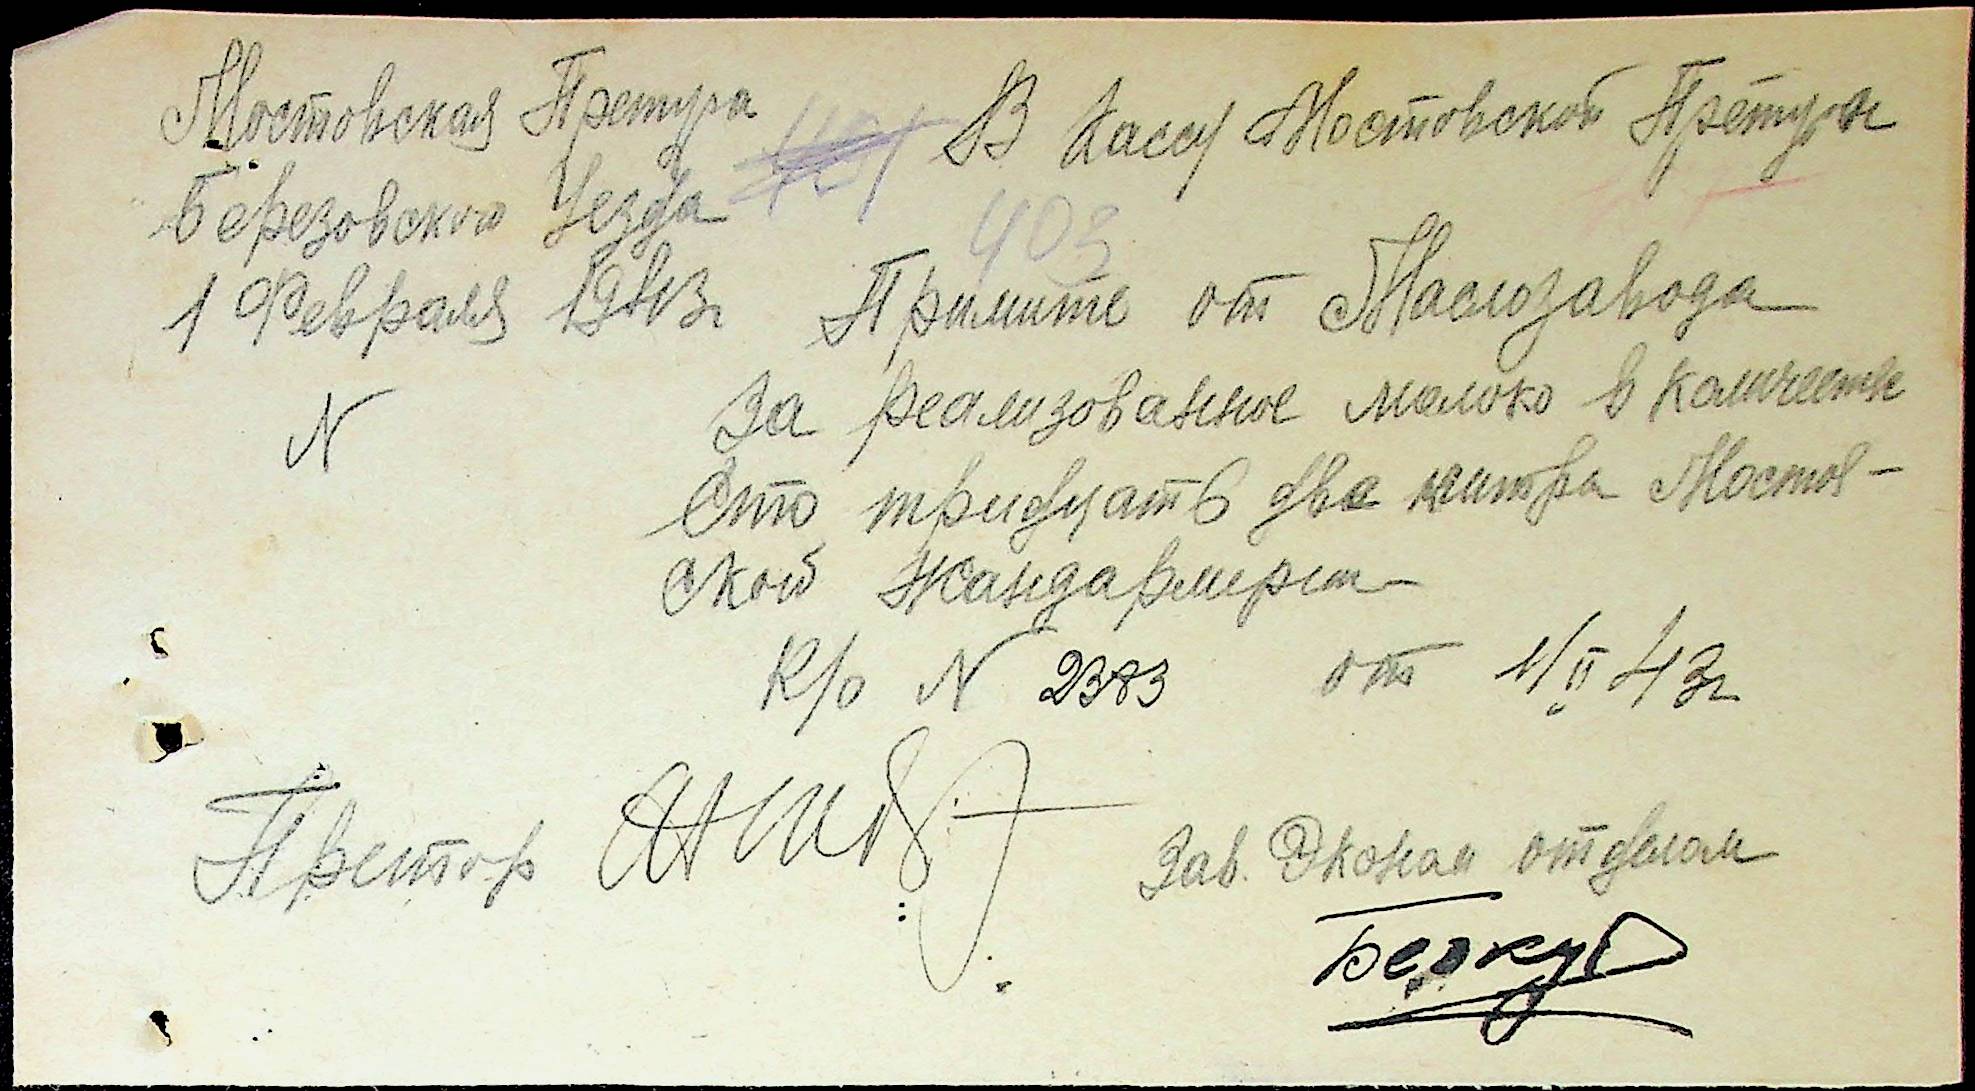 Мостовская Претура
Березовского Уезда
1 Февраля 1943г
N
403
В Кассу Мостовской Претуры
Примите от Маслозавода
За реализованное молоко в количестве
Сто тридцать два литра Мостов-
ской Жандармерии
К/о N 2383 от 1/II 43г
Претор
Зав. Эконом отделом
Беркут